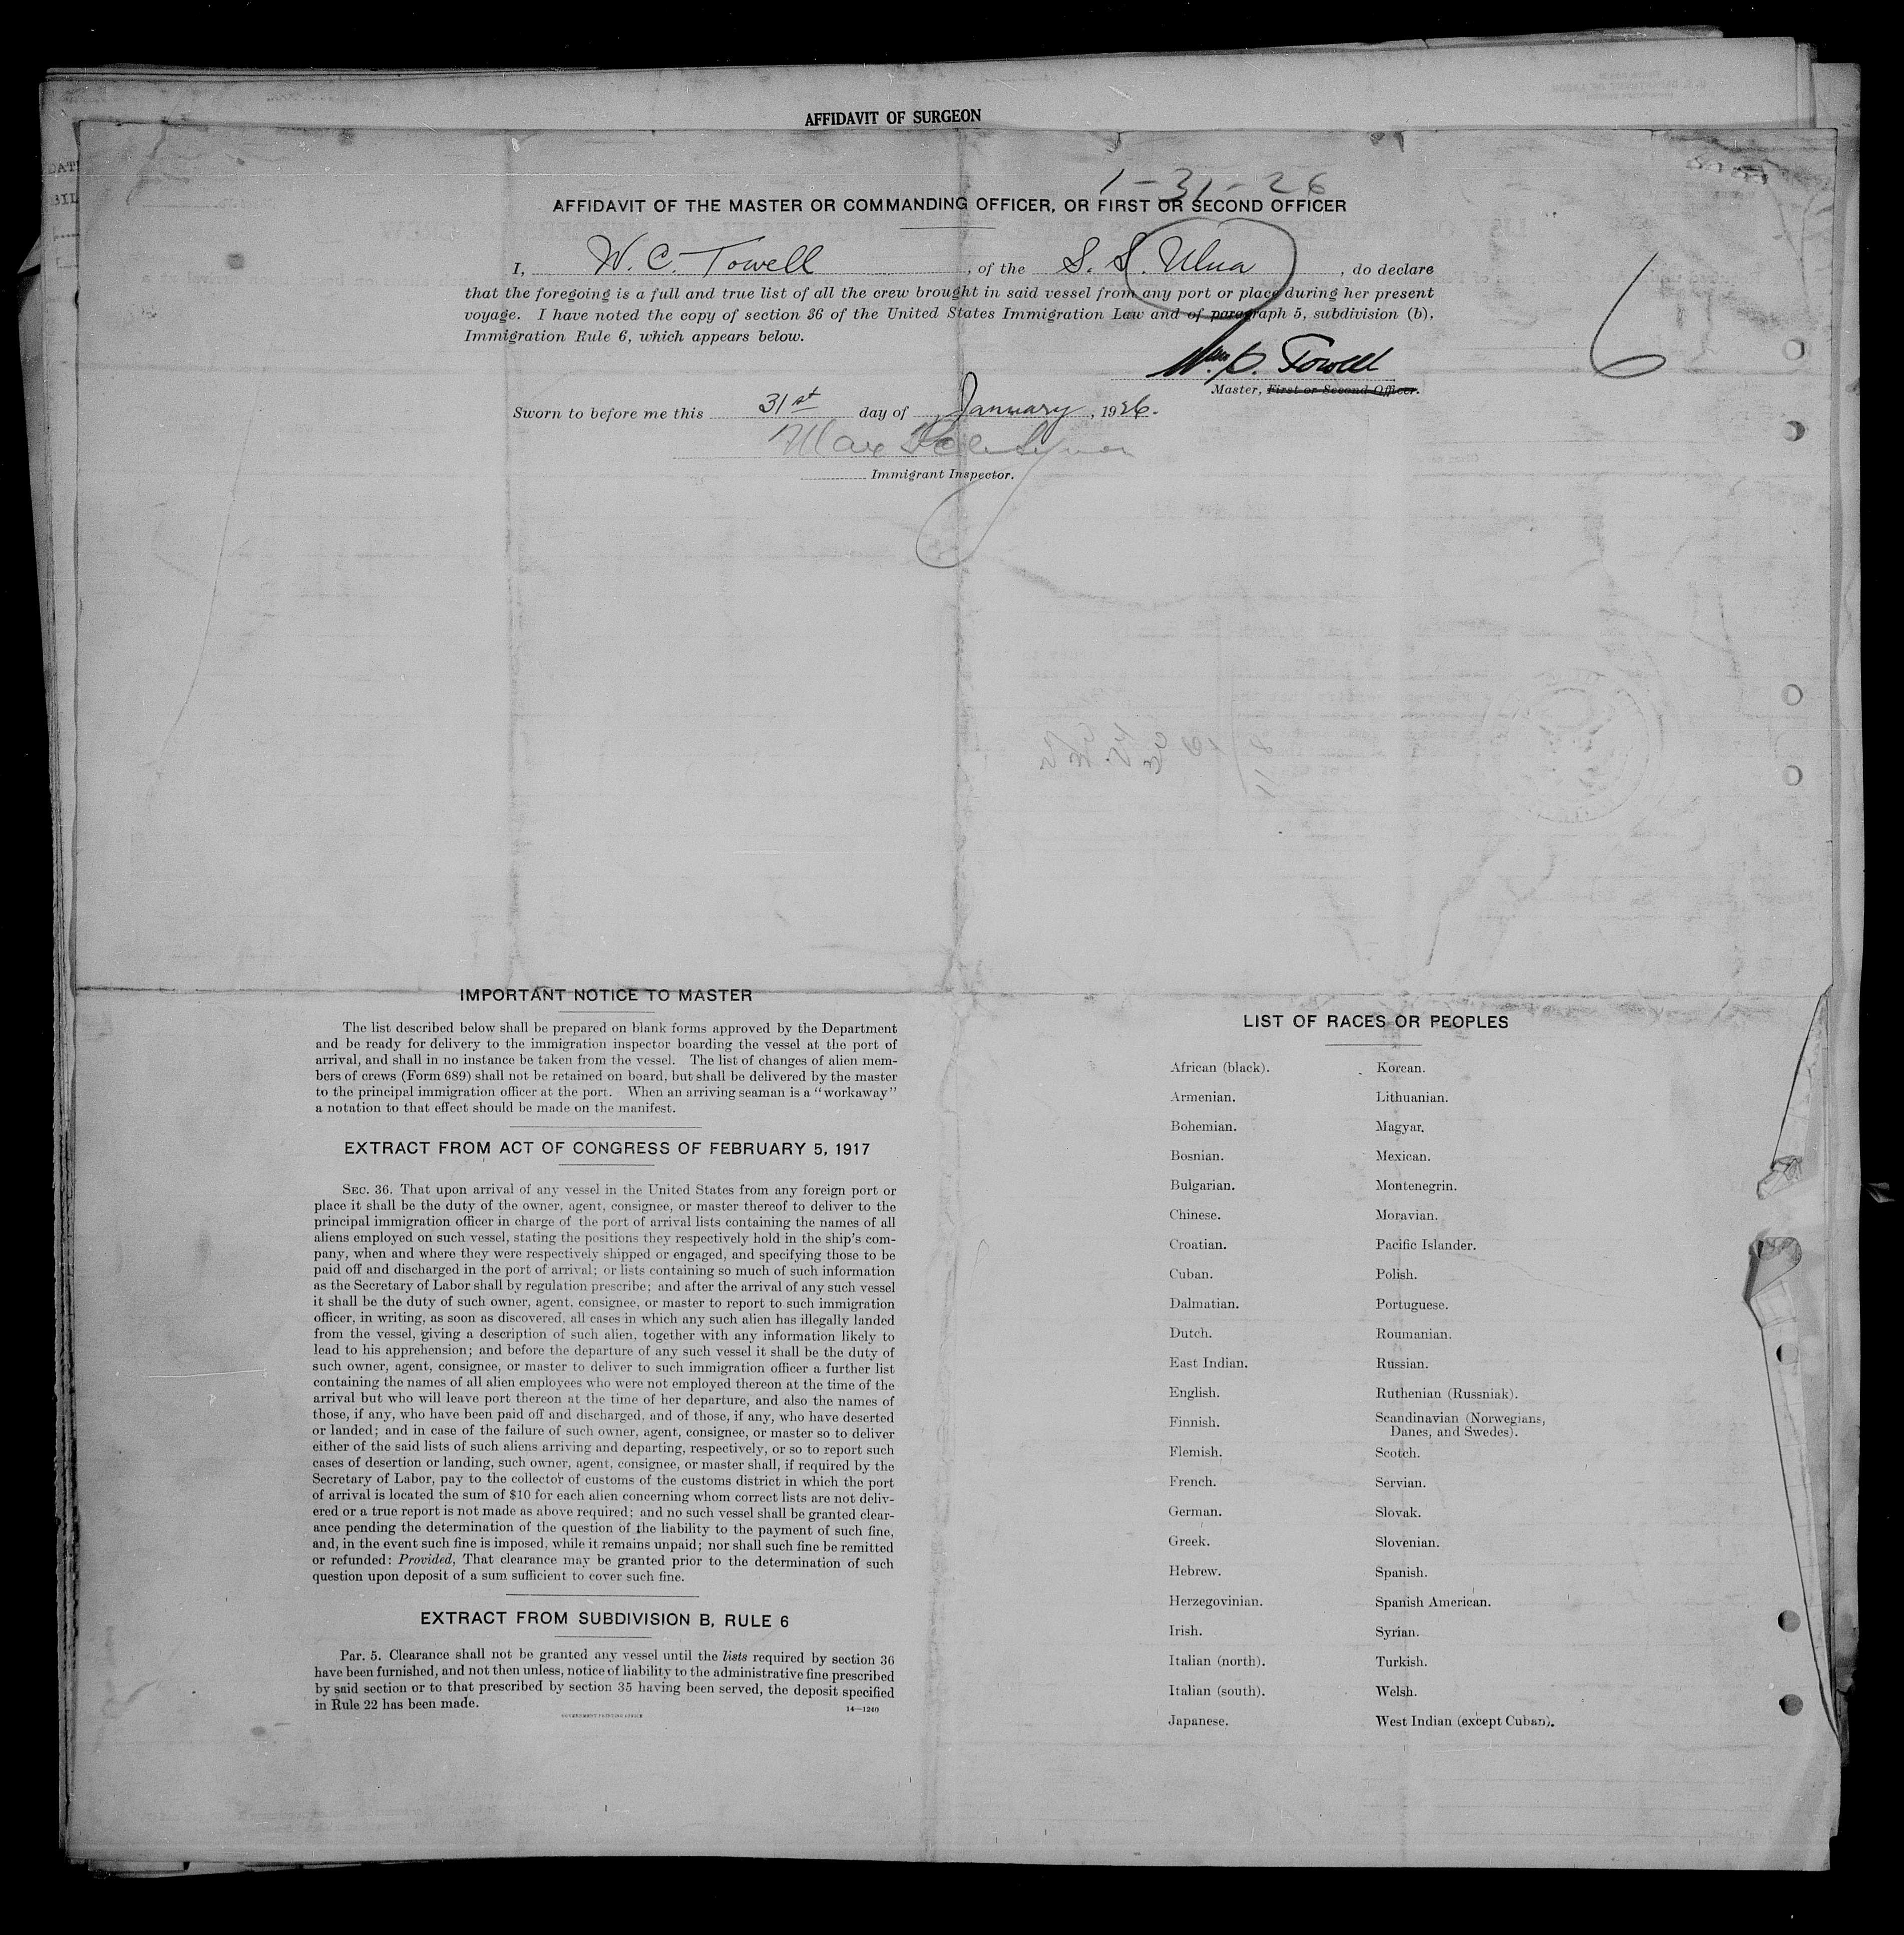 AFFIDAVIT OF SURGEON
1-31-26
AFFIDAVIT OF THE MASTER OR COMMANDING OFFICER, OR FIRST OR SECOND OFFICER
I, W. C. Towell, of the S. S. Ulua, do declare
that the foregoing is a full and true list of all the crew brought in said vessel from any port or place during her present
voyage. I have noted the copy of section 36 of the United States Immigration Law and of paragraph 5, subdivision (b),
Immigration Rule 6, which appears below.
6
Wm. C. Towell
Master, First or Second Officer.
Sworn to before me this 31st day of January, 1926.
Max
Immigrant Inspector.
IMPORTANT NOTICE TO MASTER
The list described below shall be prepared on blank forms approved by the Department
and be ready for delivery to the immigration inspector boarding the vessel at the port of
arrival, and shall in no instance be taken from the vessel. The list of changes of alien mem-
bers of crews (Form 689) shall not be retained on board, but shall be delivered by the master
to the principal immigration officer at the port. When an arriving seaman is a "workaway"
a notation to that effect should be made on the manifest.
EXTRACT FROM ACT OF CONGRESS OF FEBRUARY 5, 1917
SEC. 36. That upon arrival of any vessel in the United States from any foreign port or
place it shall be the duty of the owner, agent, consignee, or master thereof to deliver to the
principal immigration officer in charge of the port of arrival lists containing the names of all
aliens employed on such vessel, stating the positions they respectively hold in the ship's com-
pany, when and where they were respectively shipped or engaged, and specifying those to be
paid off and discharged in the port of arrival; or lists containing so much of such information
as the Secretary of Labor shall by regulation prescribe; and after the arrival of any such vessel
it shall be the duty of such owner, agent, consignee, or master to report to such immigration
officer, in writing, as soon as discovered, all cases in which any such alien has illegally landed
from the vessel, giving a description of such alien, together with any information likely to
lead to his apprehension; and before the departure of any such vessel it shall be the duty of
such owner, agent, consignee, or master to deliver to such immigration officer a further list
containing the names of all alien employees who were not employed thereon at the time of the
arrival but who will leave port thereon at the time of her departure, and also the names of
those, if any, who have been paid off and discharged, and of those, if any, who have deserted
or landed; and in case of the failure of such owner, agent, consignee, or master so to deliver
either of the said lists of such aliens arriving and departing, respectively, or so to report such
cases of desertion or landing, such owner, agent, consignee, or master shall, if required by the
Secretary of Labor, pay to the collector of customs of the customs district in which the port
of arrival is located the sum of $10 for each alien concerning whom correct lists are not deliv-
ered or a true report is not made as above required; and no such vessel shall be granted clear-
ance pending the determination of the question of the liability to the payment of such fine,
and, in the event such fine is imposed, while it remains unpaid; nor shall such fine be remitted
or refunded: Provided, That clearance may be granted prior to the determination of such
question upon deposit of a sum sufficient to cover such fine.
EXTRACT FROM SUBDIVISION B, RULE 6
Par. 5. Clearance shall not be granted any vessel until the lists required by section 36
have been furnished, and not then unless, notice of liability to the administrative fine prescribed
by said section or to that prescribed by section 35 having been served, the deposit specified
in Rule 22 has been made.
GOVERNMENT PRINTING OFFICE 14—1240
LIST OF RACES OR PEOPLES
African (black). Korean.
Armenian. Lithuanian.
Bohemian. Magyar.
Bosnian. Mexican.
Bulgarian. Montenegrin.
Chinese. Moravian.
Croatian. Pacific Islander.
Cuban. Polish.
Dalmatian. Portuguese.
Dutch. Roumanian.
East Indian. Russian.
English. Ruthenian (Russniak).
Finnish. Scandinavian (Norwegians,
Danes, and Swedes).
Flemish. Scotch.
French. Servian.
German. Slovak.
Greek. Slovenian.
Hebrew. Spanish.
Herzegovinian. Spanish American.
Irish. Syrian.
Italian (north). Turkish.
Italian (south). Welsh.
Japanese. West Indian (except Cuban).